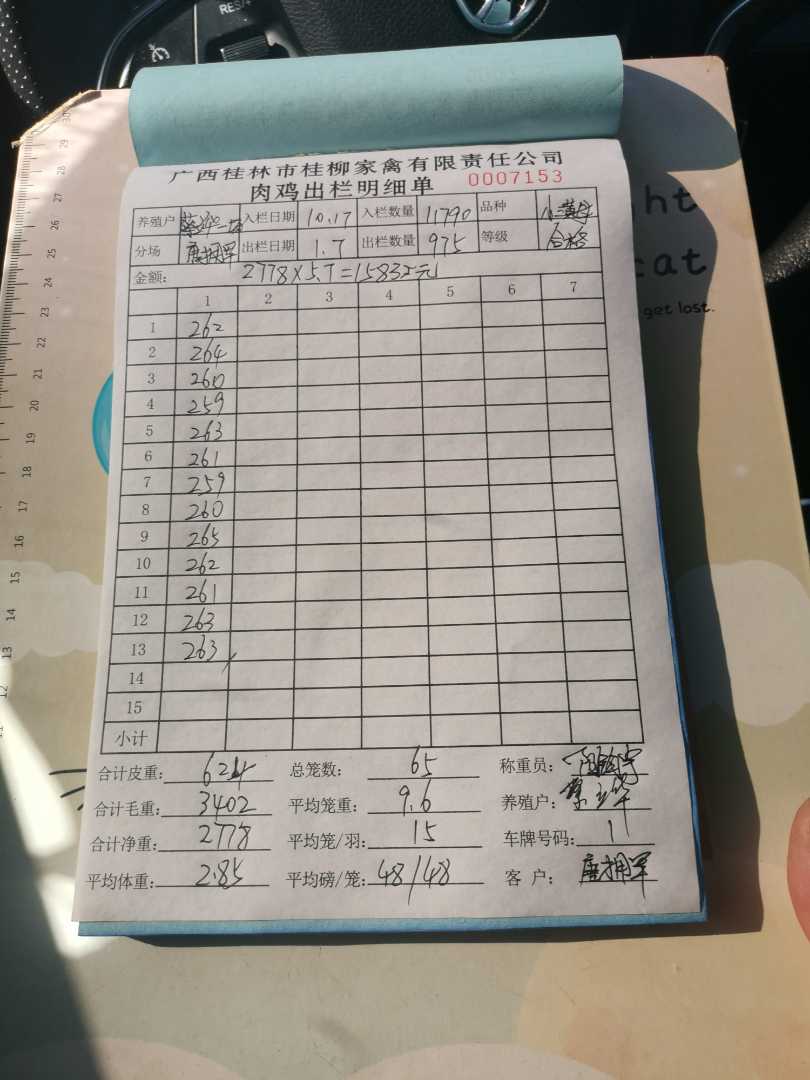 RES
广西桂林市桂柳家禽有限责任公司
肉鸡出栏明细单 0007153
养殖户 入栏日期 10.17 入栏数量 11790 品种
分场 唐拥军 出栏日期 1.7 出栏数量 975 等级 合格
金额: 2778×5.7=15835元
1 2 3 4 5 6 7
1 262
2 264
3 260
4 259
5 263
6 261
7 259
8 260
9 265
10 262
11 261
12 263
13 263
14
15
小计
合计皮重: 624 总笼数: 65 称重员:
合计毛重: 3402 平均笼重: 9.6 养殖户:
合计净重: 2778 平均笼/羽: 15 车牌号码: 1
平均体重: 2.85 平均磅/笼: 48/48 客 户: 唐拥军
ht
cat
get lost.
30
29
28
27
26
25
24
23
22
21
20
19
18
17
16
15
14
13
12
11